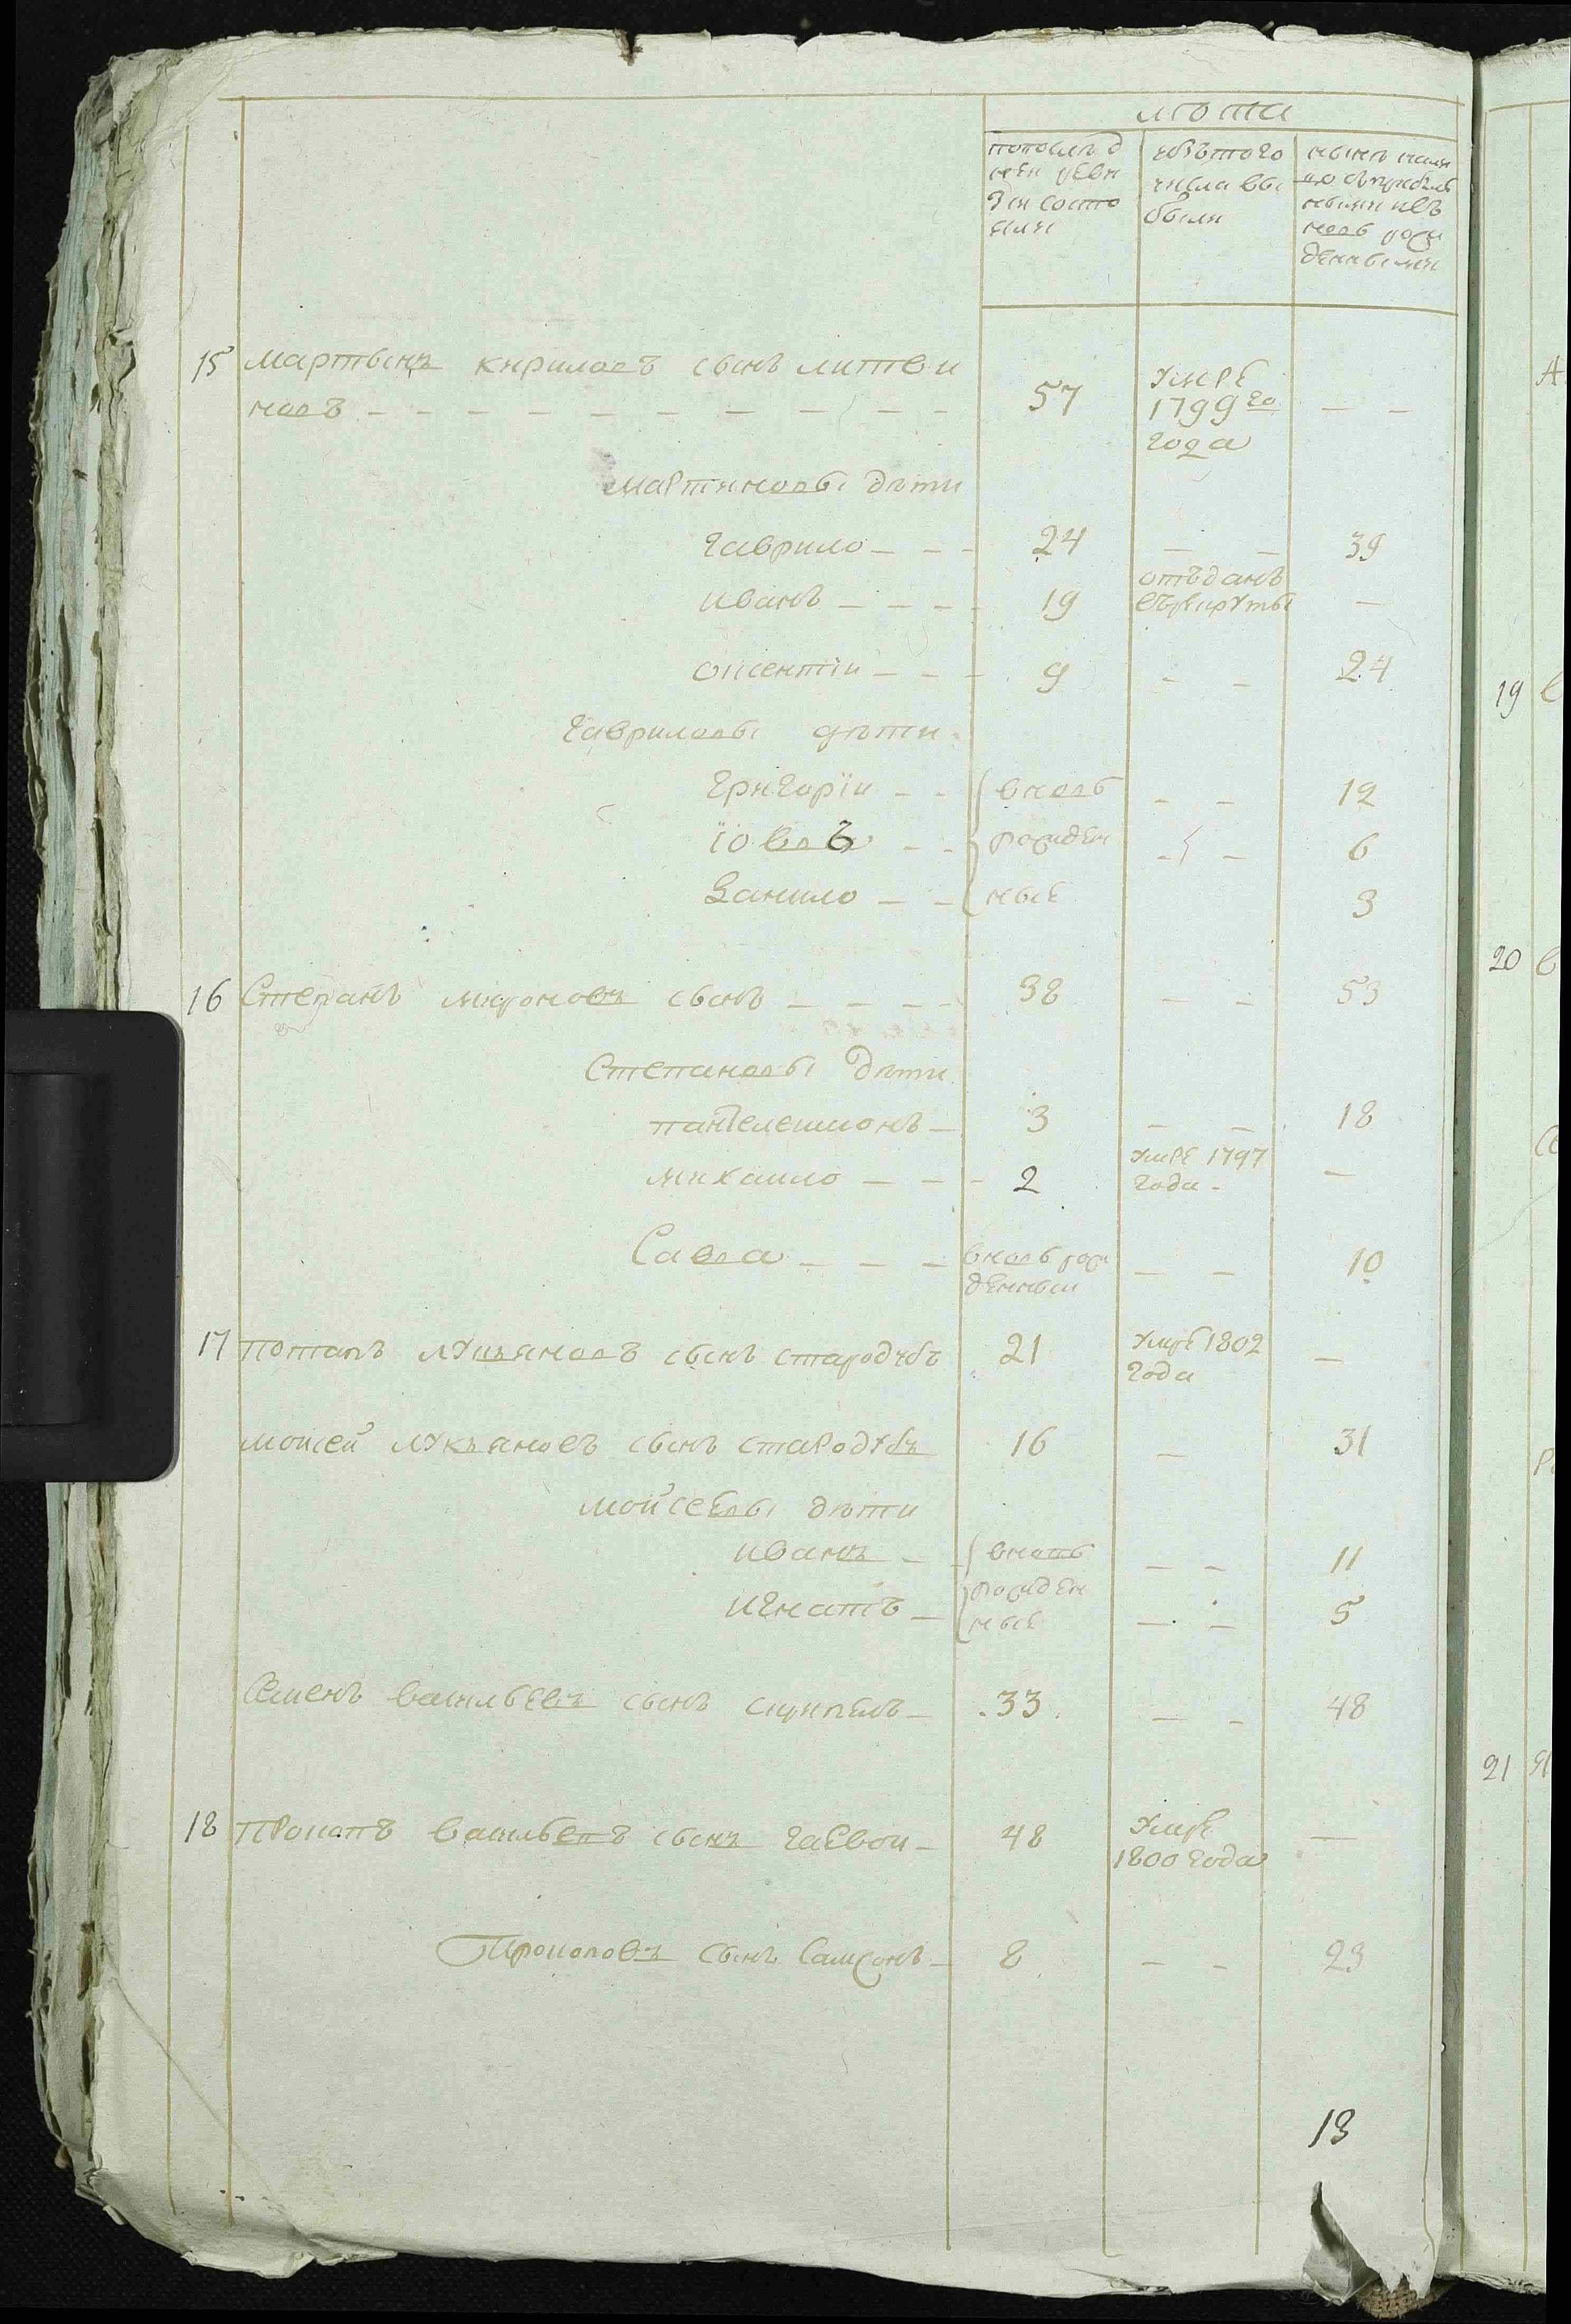 лѣта
попослѣд
ней реви
зiи состо
яли
изътого
числа вы
были
нынѣ нали
цо съприбыл
ными ивъ
новь рож
денными
15 Мартынъ кириловъ сынъ литви
новъ 57 умре 1799го года
Мартиновы дѣти
гаврило 24 39
иванъ 19 отъданъ върекруты
оксентiи 9 24
гавриловы дѣти
григорiи вновь 12
iовъ рожден 6
данило ные 3
16 Степанъ мироновъ сынъ 38 53
Степановы дѣти
пантелеимонъ 3 18
михаило 2 умре 1797 года
Савва вновь рожденныи 10
17 потапъ лукъяновъ сынъ стародубъ 21 умре 1802 года
моисей лукъяновъ сынъ стародубъ 16 31
мойсеевы дѣти
иванъ вновь 11
игнатъ рожденные 5
Семенъ васильевъ сынъ 33 48
18 прокопъ васильевъ сынъ гаевои 48 умре 1800 года
Прокоповъ сынъ Самсонъ 8 23
13
19
20
21